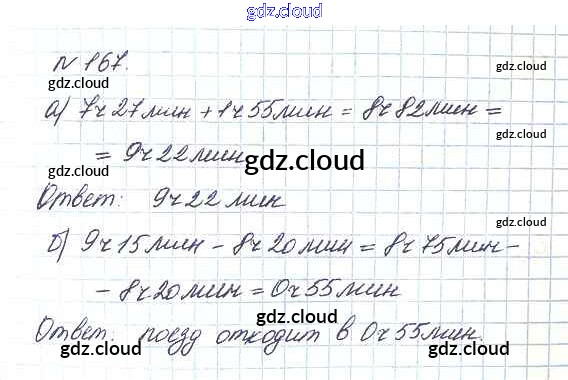 gdz.cloud
gdz.cloud
N 167.
gdz.cloud
gdz.cloud
а) 7ч 27мин + 1ч 55мин = 8ч 82мин =
= 9ч 22мин
gdz.cloud
Ответ: 9ч 22 мин
gdz.cloud
б) 9ч 15мин - 8ч 20мин = 8ч 75мин -
- 8ч 20мин = 0ч 55мин
gdz.cloud
Ответ: поезд отходит в 0ч 55мин.
gdz.cloud
gdz.cloud